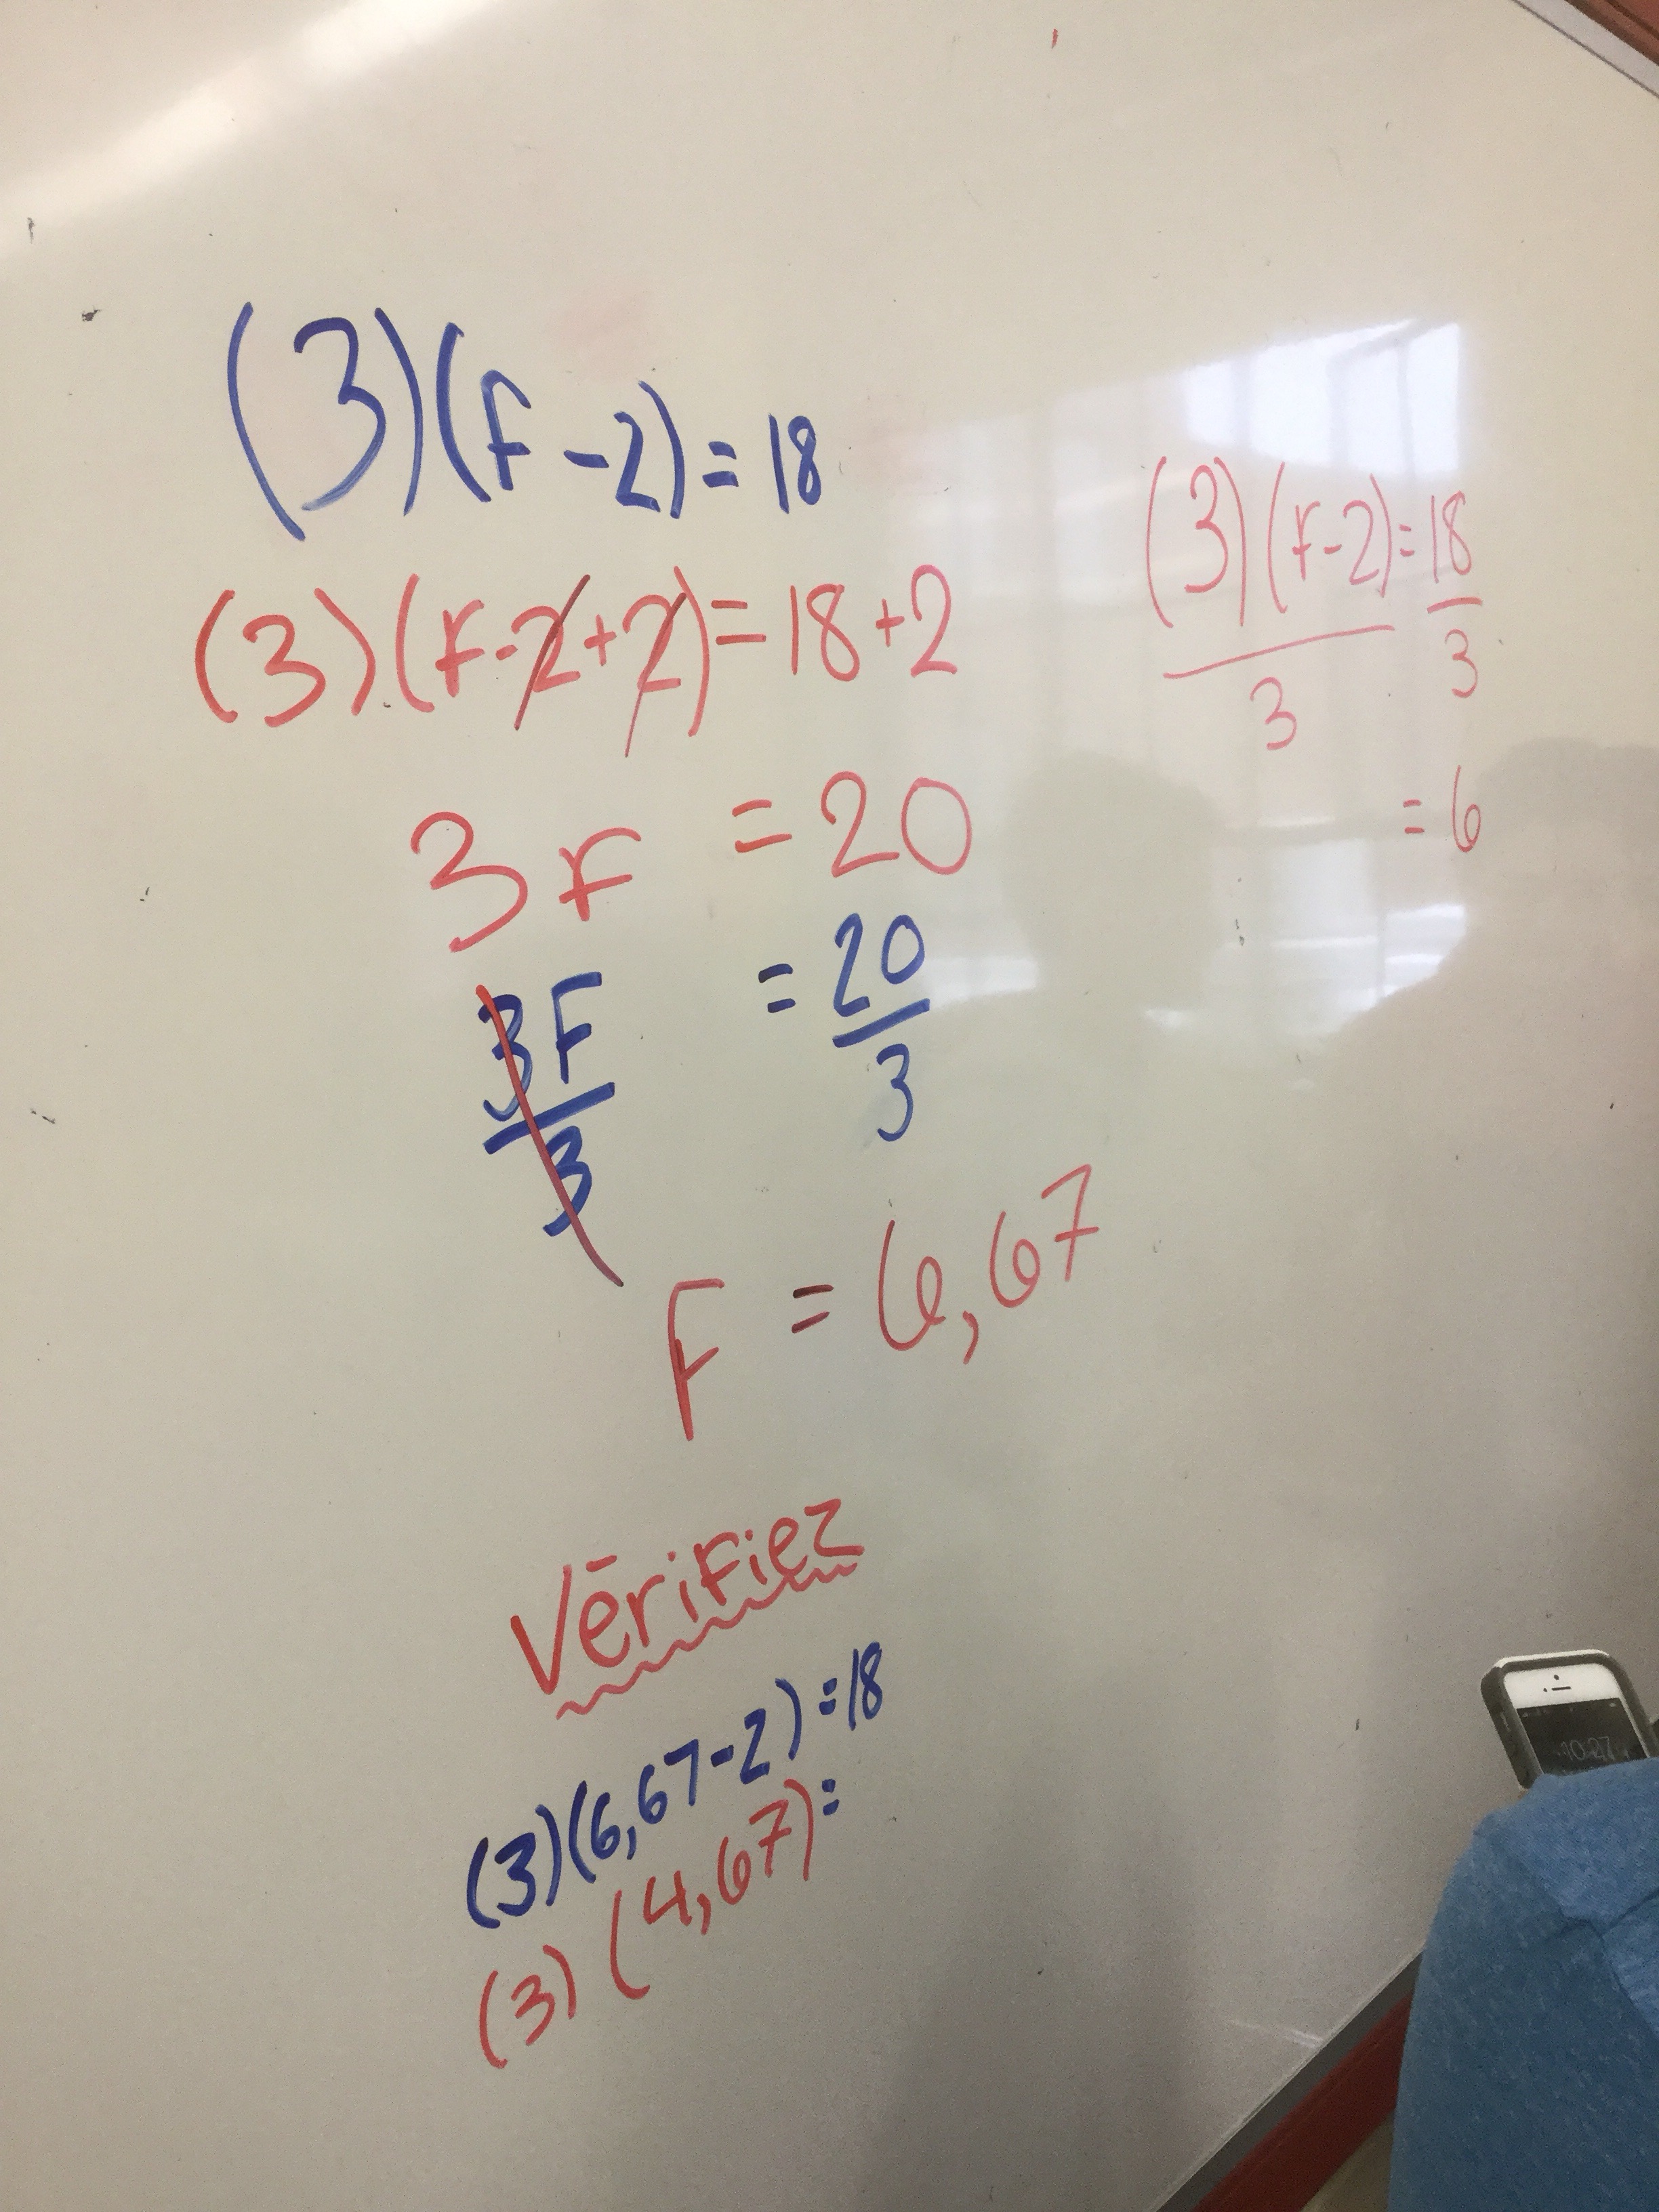 (3)(F-2)=18
(3)(F-2+2)=18+2
3F = 20
3F/3 = 20/3
F = 6,67
Vérifiez
(3)(6,67-2)=18
(3)(4,67)=
(3)(F-2)/3=18/3
=6
10:27